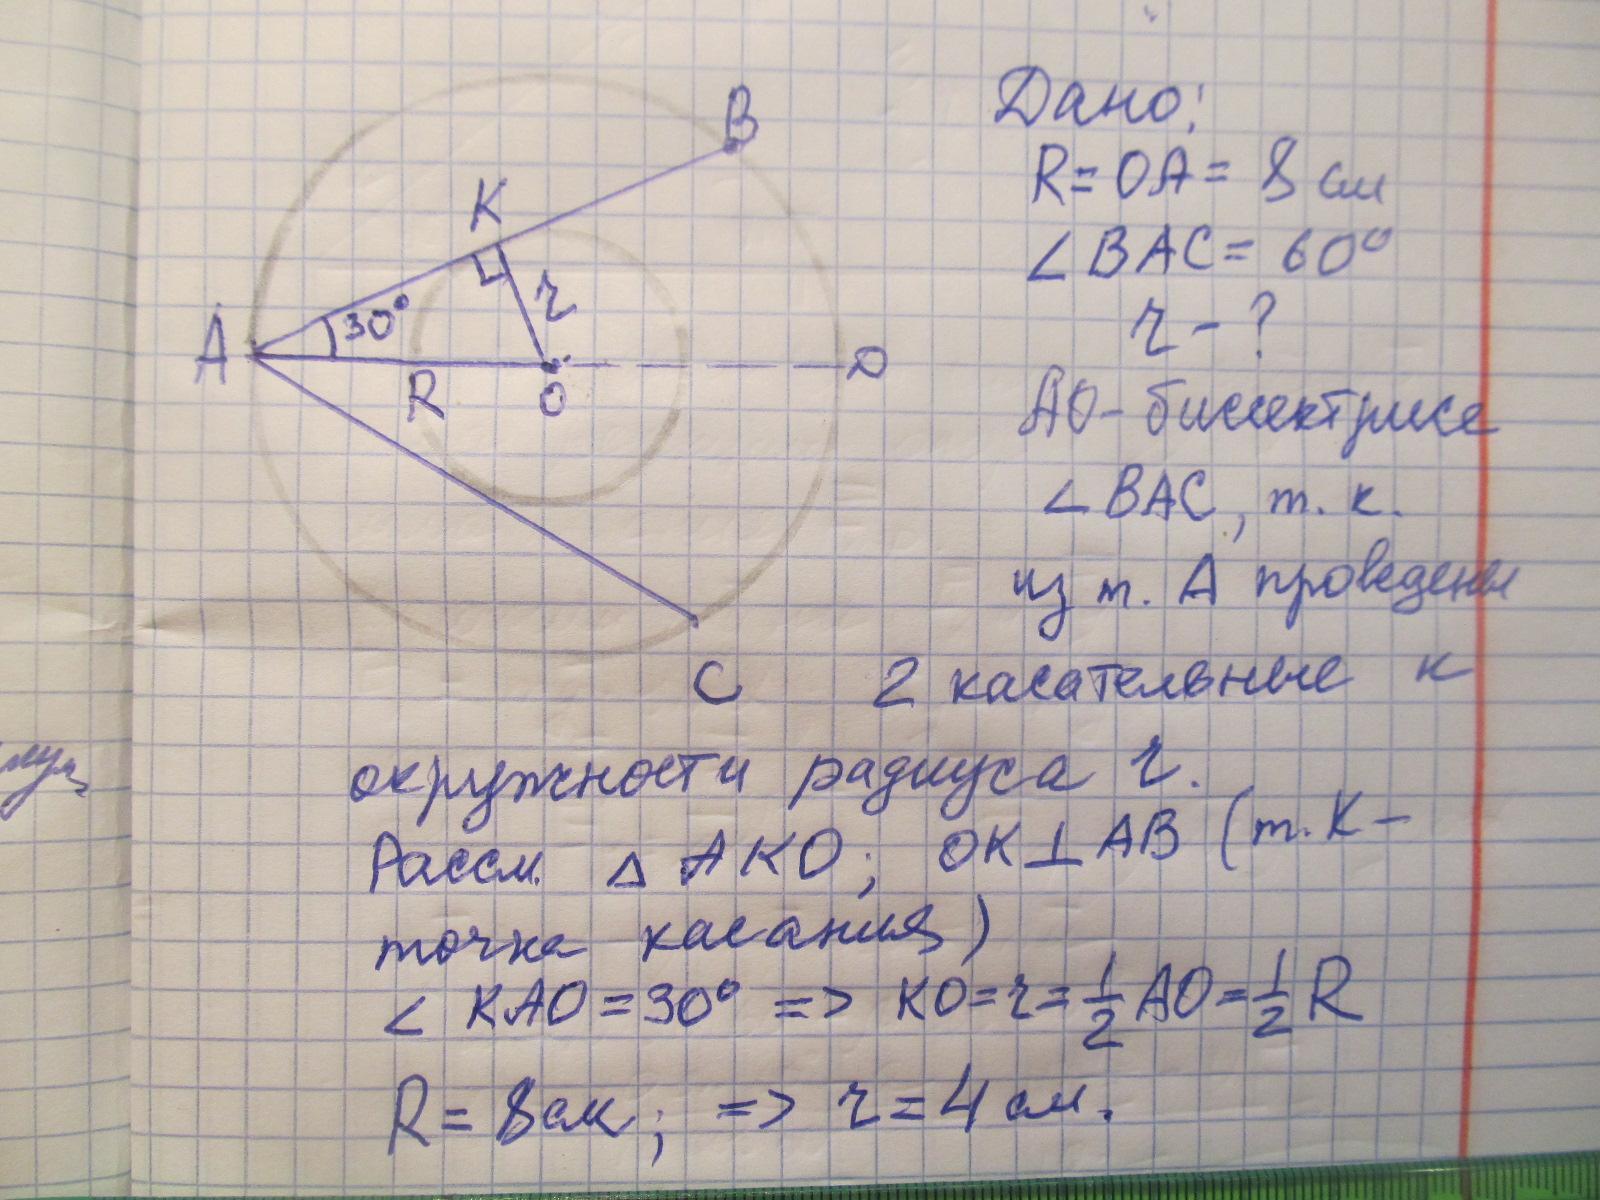 B
K
r
30°
A
R
O
D
C
Дано:
R = OA = 8 см
∠ BAC = 60°
r - ?
AO - биссектриса
∠ BAC, т. к.
из т. A проведены
2 касательные к
окружности радиуса r.
Рассм. △ AKO; OK ⊥ AB (т. K -
точка касания)
∠ KAO = 30° => KO = r = 1/2 AO = 1/2 R
R = 8 см; => r = 4 см.